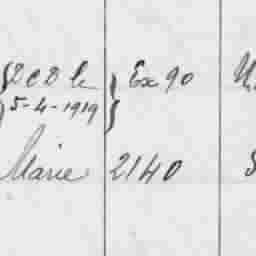 {2e D le } Ex 90
5-4-1919
Marie 2140